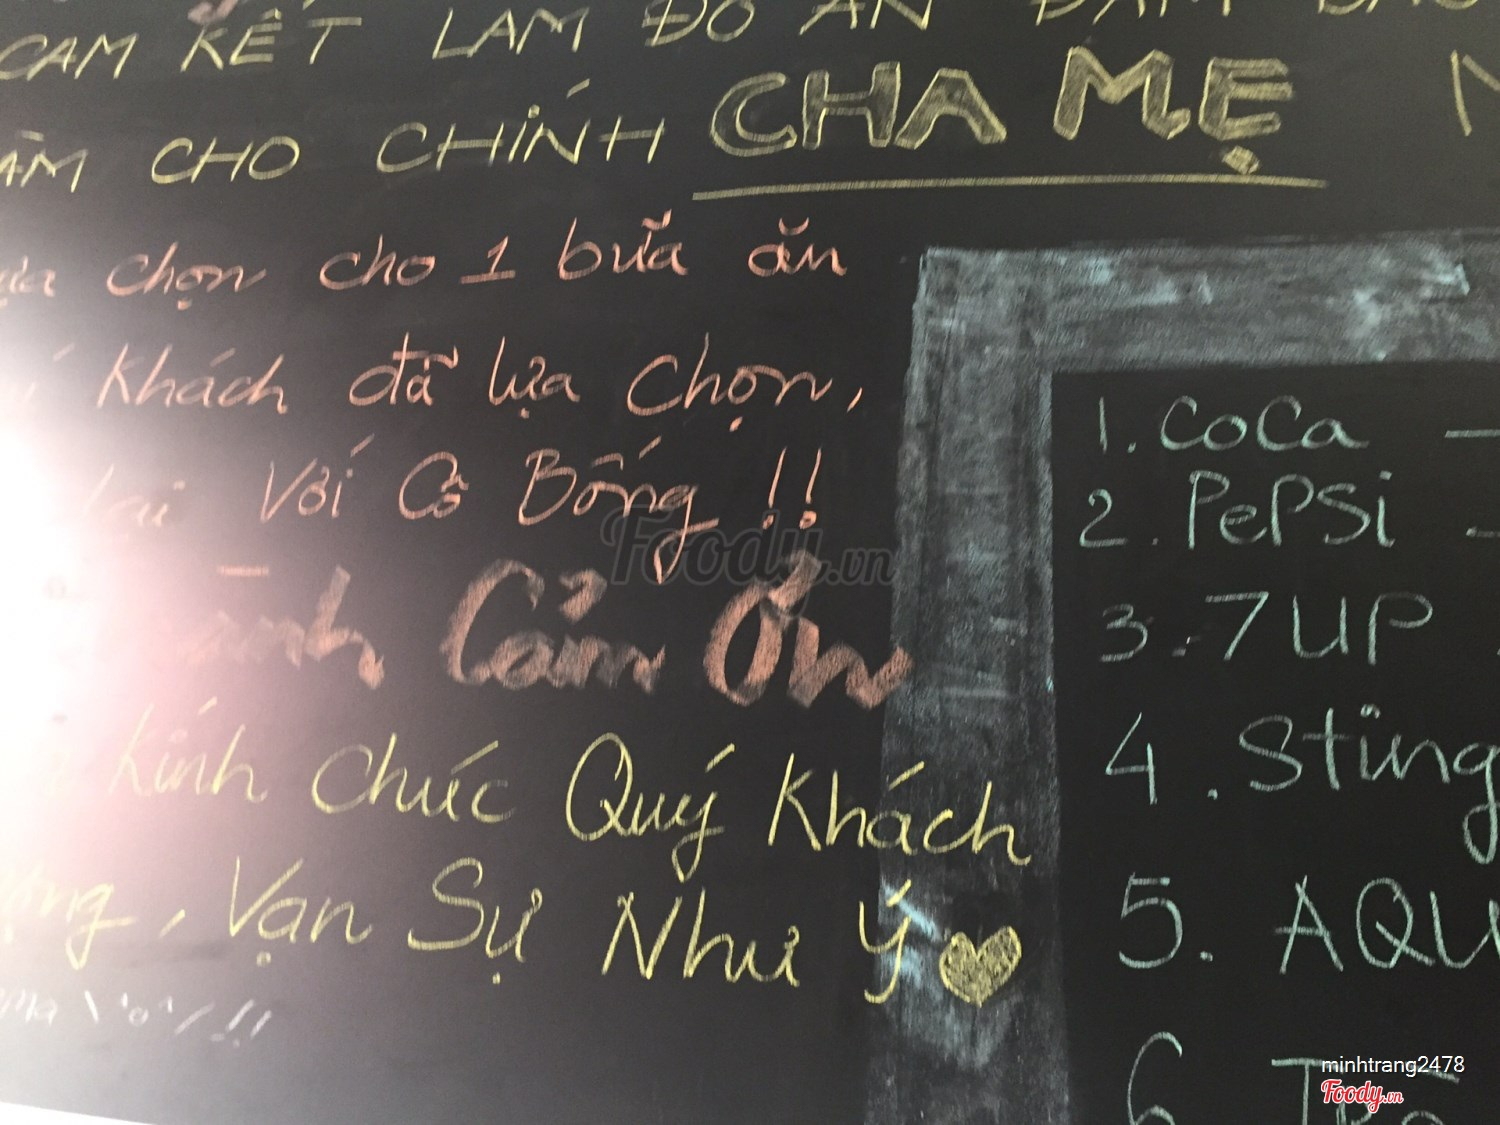 CAM KẾT LÀM ĐỒ ĂN ĐẢM
CHO CHÍNH CHA MẸ
chọn cho 1 bữa ăn
Khách đã lựa chọn,
Với Cô Bống !!
Cảm Ơn
Kính chúc Quý Khách
, Vạn Sự Như Ý
1. CoCa -
2. PePSi -
3. 7 UP
4. Sting
5. AQU
6.
Foody.vn
minhtrang2478
Foody.vn